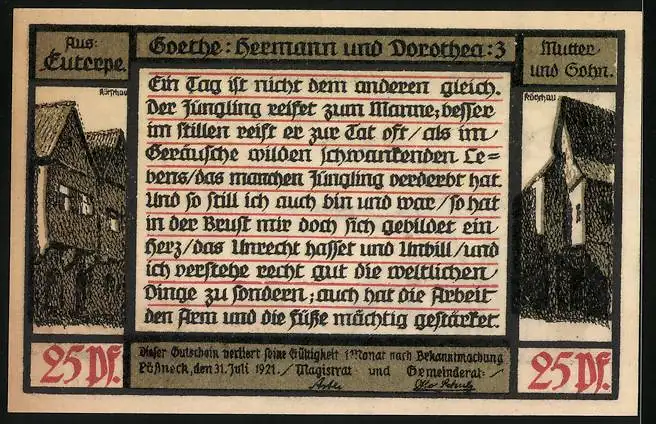 Aus:
Euterpe.
Goethe: Hermann und Dorothea: 3
Mutter
und Sohn.
Kötschau
Kötschau
Ein Tag ist nicht dem anderen gleich.
Der Jüngling reifet zum Manne; besser
im stillen reift er zur Tat oft/als im
Geräusche wilden schwankenden Le=
bens/das manchen Jüngling verderbt hat.
Und so still ich auch bin und war/so hat
in der Brust mir doch sich gebildet ein
Herz/das Unrecht hasset und Unbill/und
ich verstehe recht gut die weltlichen
Dinge zu sondern; auch hat die Arbeit
den Arm und die Füße mächtig gestärket.
25 Pf.
Dieser Gutschein verliert seine Gültigkeit 1 Monat nach Bekanntmachung
Pößneck, den 31. Juli 1921./Magistrat und Gemeinderat:
25 Pf.